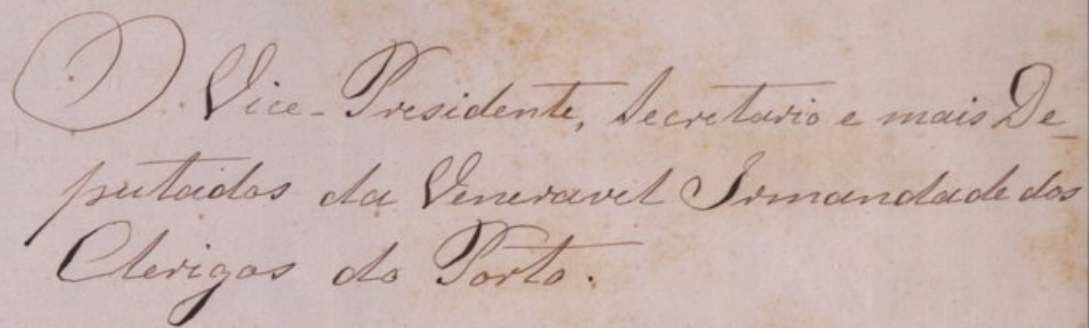 O Vice-Presidente, Secretario e mais De-
putados da Veneravel Irmandade dos
Clerigos do Porto.